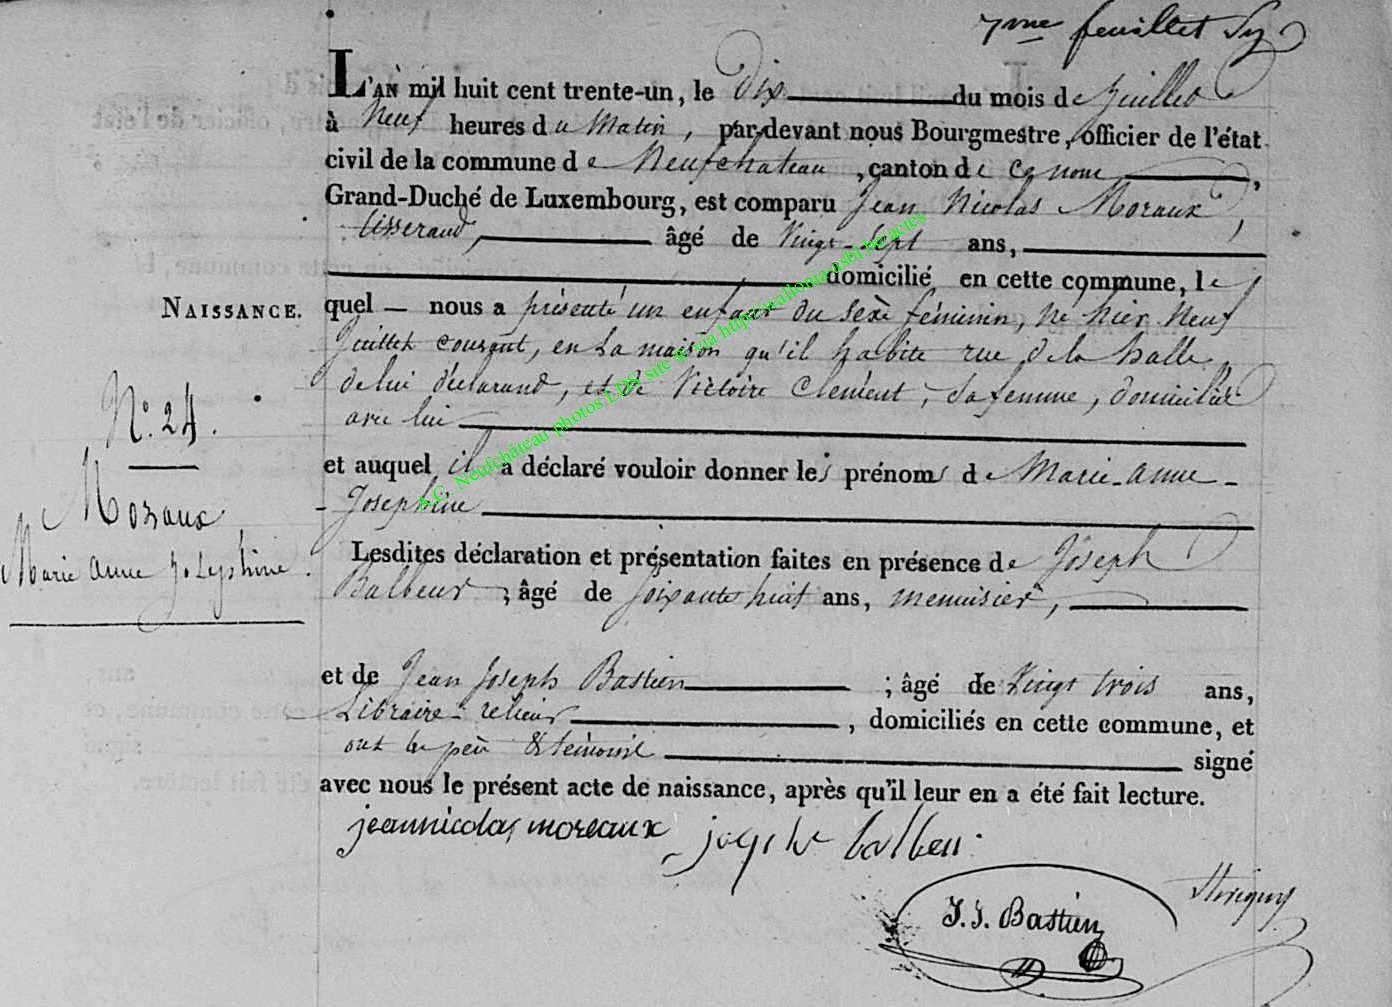 7me feuillet
L'AN mil huit cent trente-un, le Dix du mois de Juillet
à Neuf heures du Matin, par-devant nous Bourgmestre, officier de l'état
civil de la commune de Neufchateau, canton de ce nom,
Grand-Duché de Luxembourg, est comparu Jean Nicolas Moraux,
tisserand, âgé de Vingt-Sept ans,
domicilié en cette commune, le
NAISSANCE.
quel — nous a présenté un enfant du sexe féminin, né hier Neuf
Juillet courant, en la maison qu'il habite rue de la halle
de lui déclarand, et de Victoire Clément, sa femme, domiciliée
avec lui
et auquel il a déclaré vouloir donner les prénoms de Marie-anne-
Josephine
N°. 24.
Moraux
Marie anne Josephine.
Lesdites déclaration et présentation faites en présence de Joseph
Balbeur; âgé de Soixante huit ans, menuisier,
et de Jean Joseph Bastien; âgé de Vingt trois ans,
Libraire-relieur, domiciliés en cette commune, et
ont le père & témoins signé
avec nous le présent acte de naissance, après qu'il leur en a été fait lecture.
jeannicolas moreaux
J. J. Bastien
A.C. Neufchâteau photos LDS site & via http://wallonia-asbl.be/actes